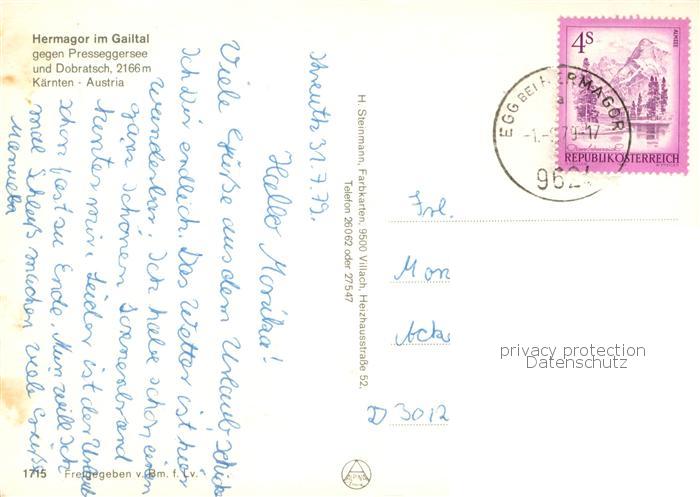 Hermagor im Gailtal
gegen Presseggersee
und Dobratsch, 2166 m
Kärnten · Austria
31.7.79.
Hallo Monika!
Viele Grüße aus dem Urlaub schicke
ich dir endlich. Das Wetter ist hier
wunderbar. Ich habe schon einen
ganz schönen Sonnenbrand
hinter mir. Leider ist der Urlaub
schon fast zu Ende. Nun will ich
mal Schluß machen viele Grüße
Manuela
1715 Freigegeben v. Bm. f. Lv.
H. Steinmann, Farbkarten, 9500 Villach, Heizhausstraße 52,
Telefon 26062 oder 27547
4S
ALMSEE
REPUBLIK ÖSTERREICH
EGG BEI HERMAGOR
a
-1.-8.79-17
962
Frl.
Mon
Acks
D 3012
privacy protection
Datenschutz